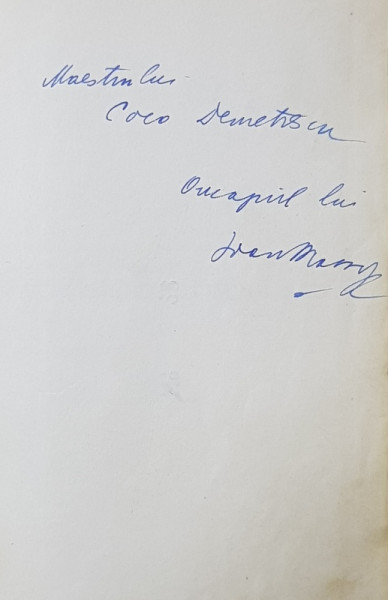 Maestrului
Coco Demetrescu
Omagiul lui
Ioan Massoff